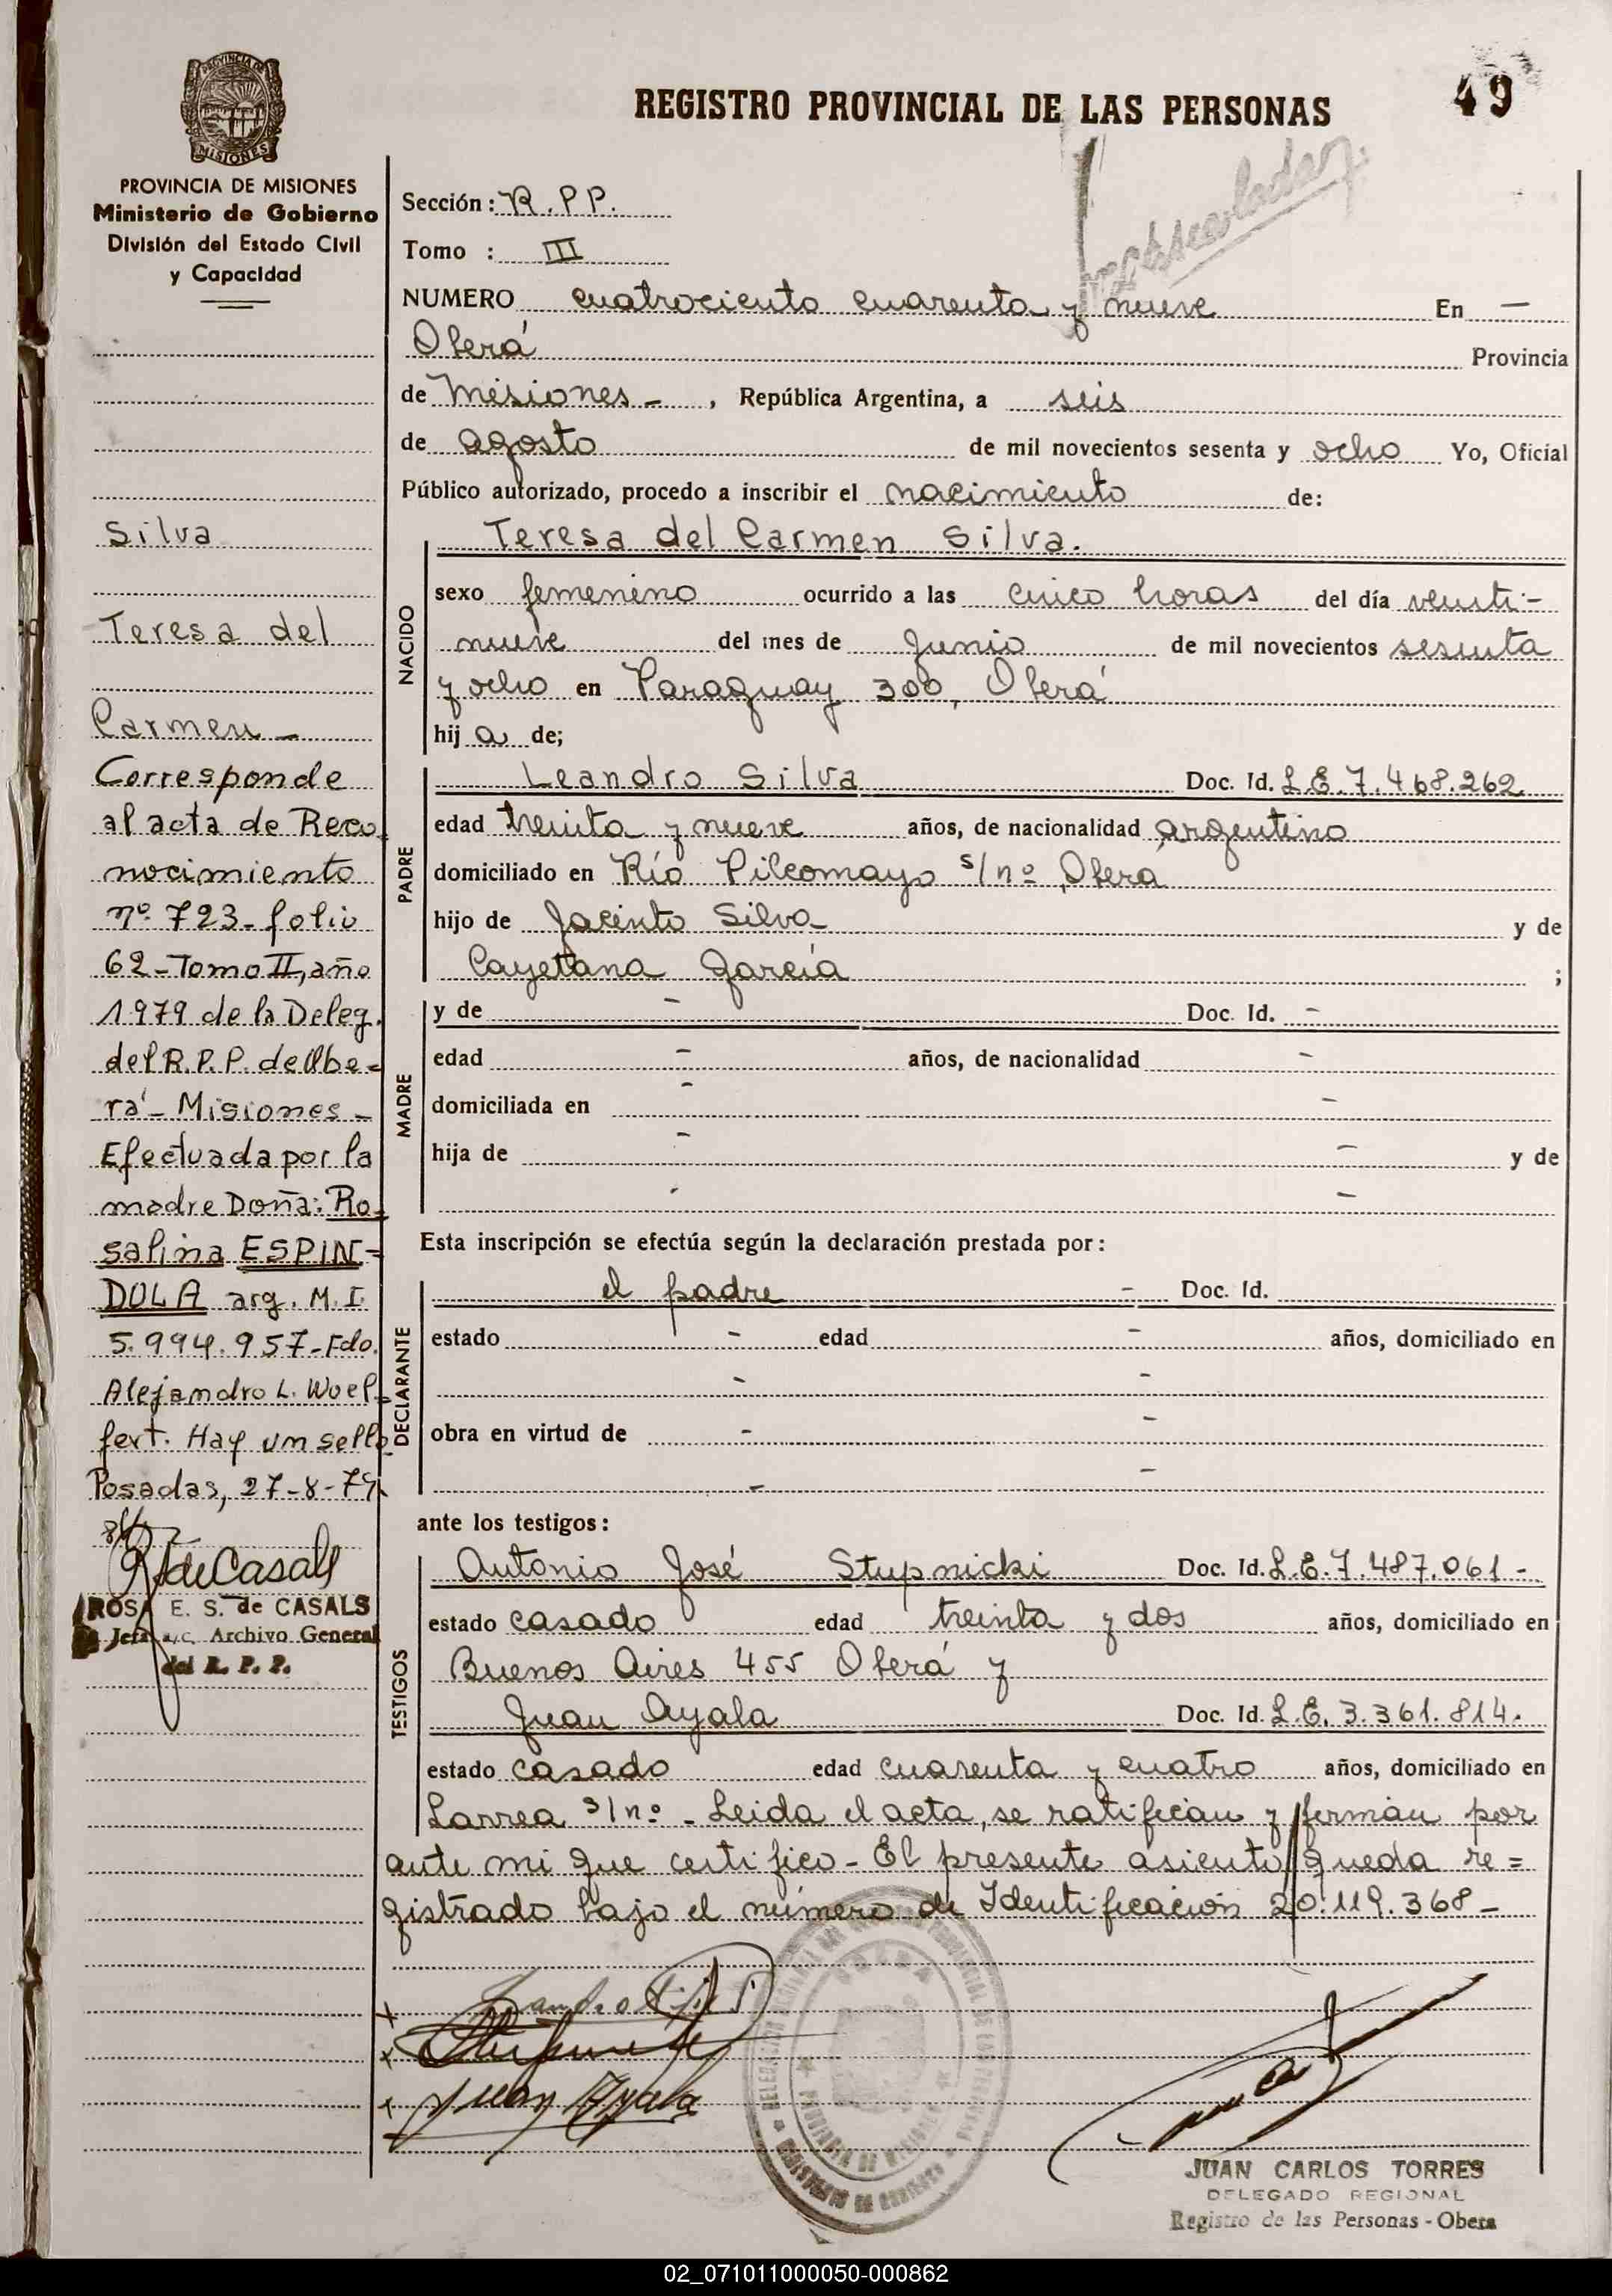 49
REGISTRO PROVINCIAL DE LAS PERSONAS
PROVINCIA DE
MISIONES
PROVINCIA DE MISIONES
Ministerio de Gobierno
División del Estado Civil
y Capacidad
Sección: R.PP.
Tomo : III
NUMERO cuatrociento cuarenta y nueve En —
Oberá Provincia
de Misiones - , República Argentina, a seis
de agosto de mil novecientos sesenta y ocho Yo, Oficial
Público autorizado, procedo a inscribir el nacimiento de:
NACIDO
Teresa del Carmen Silva.
sexo femenino ocurrido a las cinco horas del día veinti-
nueve del mes de Junio de mil novecientos sesenta
y ocho en Paraguay 300, Oberá
hij a de;
PADRE
Leandro Silva Doc. Id. L.E. 7.468.262
edad treinta y nueve años, de nacionalidad argentino
domiciliado en Río Pilcomayo s/nº Oberá
hijo de Jacinto Silva y de
Cayetana García ;
MADRE
y de - Doc. Id. -
edad - años, de nacionalidad -
domiciliada en - -
hija de - - y de
- -
Esta inscripción se efectúa según la declaración prestada por:
DECLARANTE
el padre - Doc. Id.
estado - edad - años, domiciliado en
- -
obra en virtud de - -
- -
ante los testigos:
TESTIGOS
Antonio José Stupnicki Doc. Id. L.E. 7.487.061-
estado casado edad treinta y dos años, domiciliado en
Buenos Aires 455 Oberá y
Juan Ayala Doc. Id. L.E. 3.361.814.
estado casado edad cuarenta y cuatro años, domiciliado en
Larrea s/nº - Leida el acta, se ratifican y firman por
ante mi que certifico - El presente asiento queda re=
gistrado bajo el número de Identificación 20.119.368-
Silva
Teresa del
Carmen -
Corresponde
al acta de Reco
nocimiento
nº 723- folio
62- Tomo II, año
1979 de la Deleg.
del R.P.P. de Obe-
rá - Misiones -
Efectuada por la
madre Doña: Ro-
salina ESPIN-
DOLA arg. M.I.
5.994.957-Fdo.
Alejandro L. Woel-
fert. Hay un sello
Posadas, 27-8-79
de Casals
ROSA E. S. de CASALS
Jefa a/c. Archivo General
del R. P. P.
x
x
x Juan Ayala
JUAN CARLOS TORRES
DELEGADO REGIONAL
Registro de las Personas - Obera
02_071011000050-000862